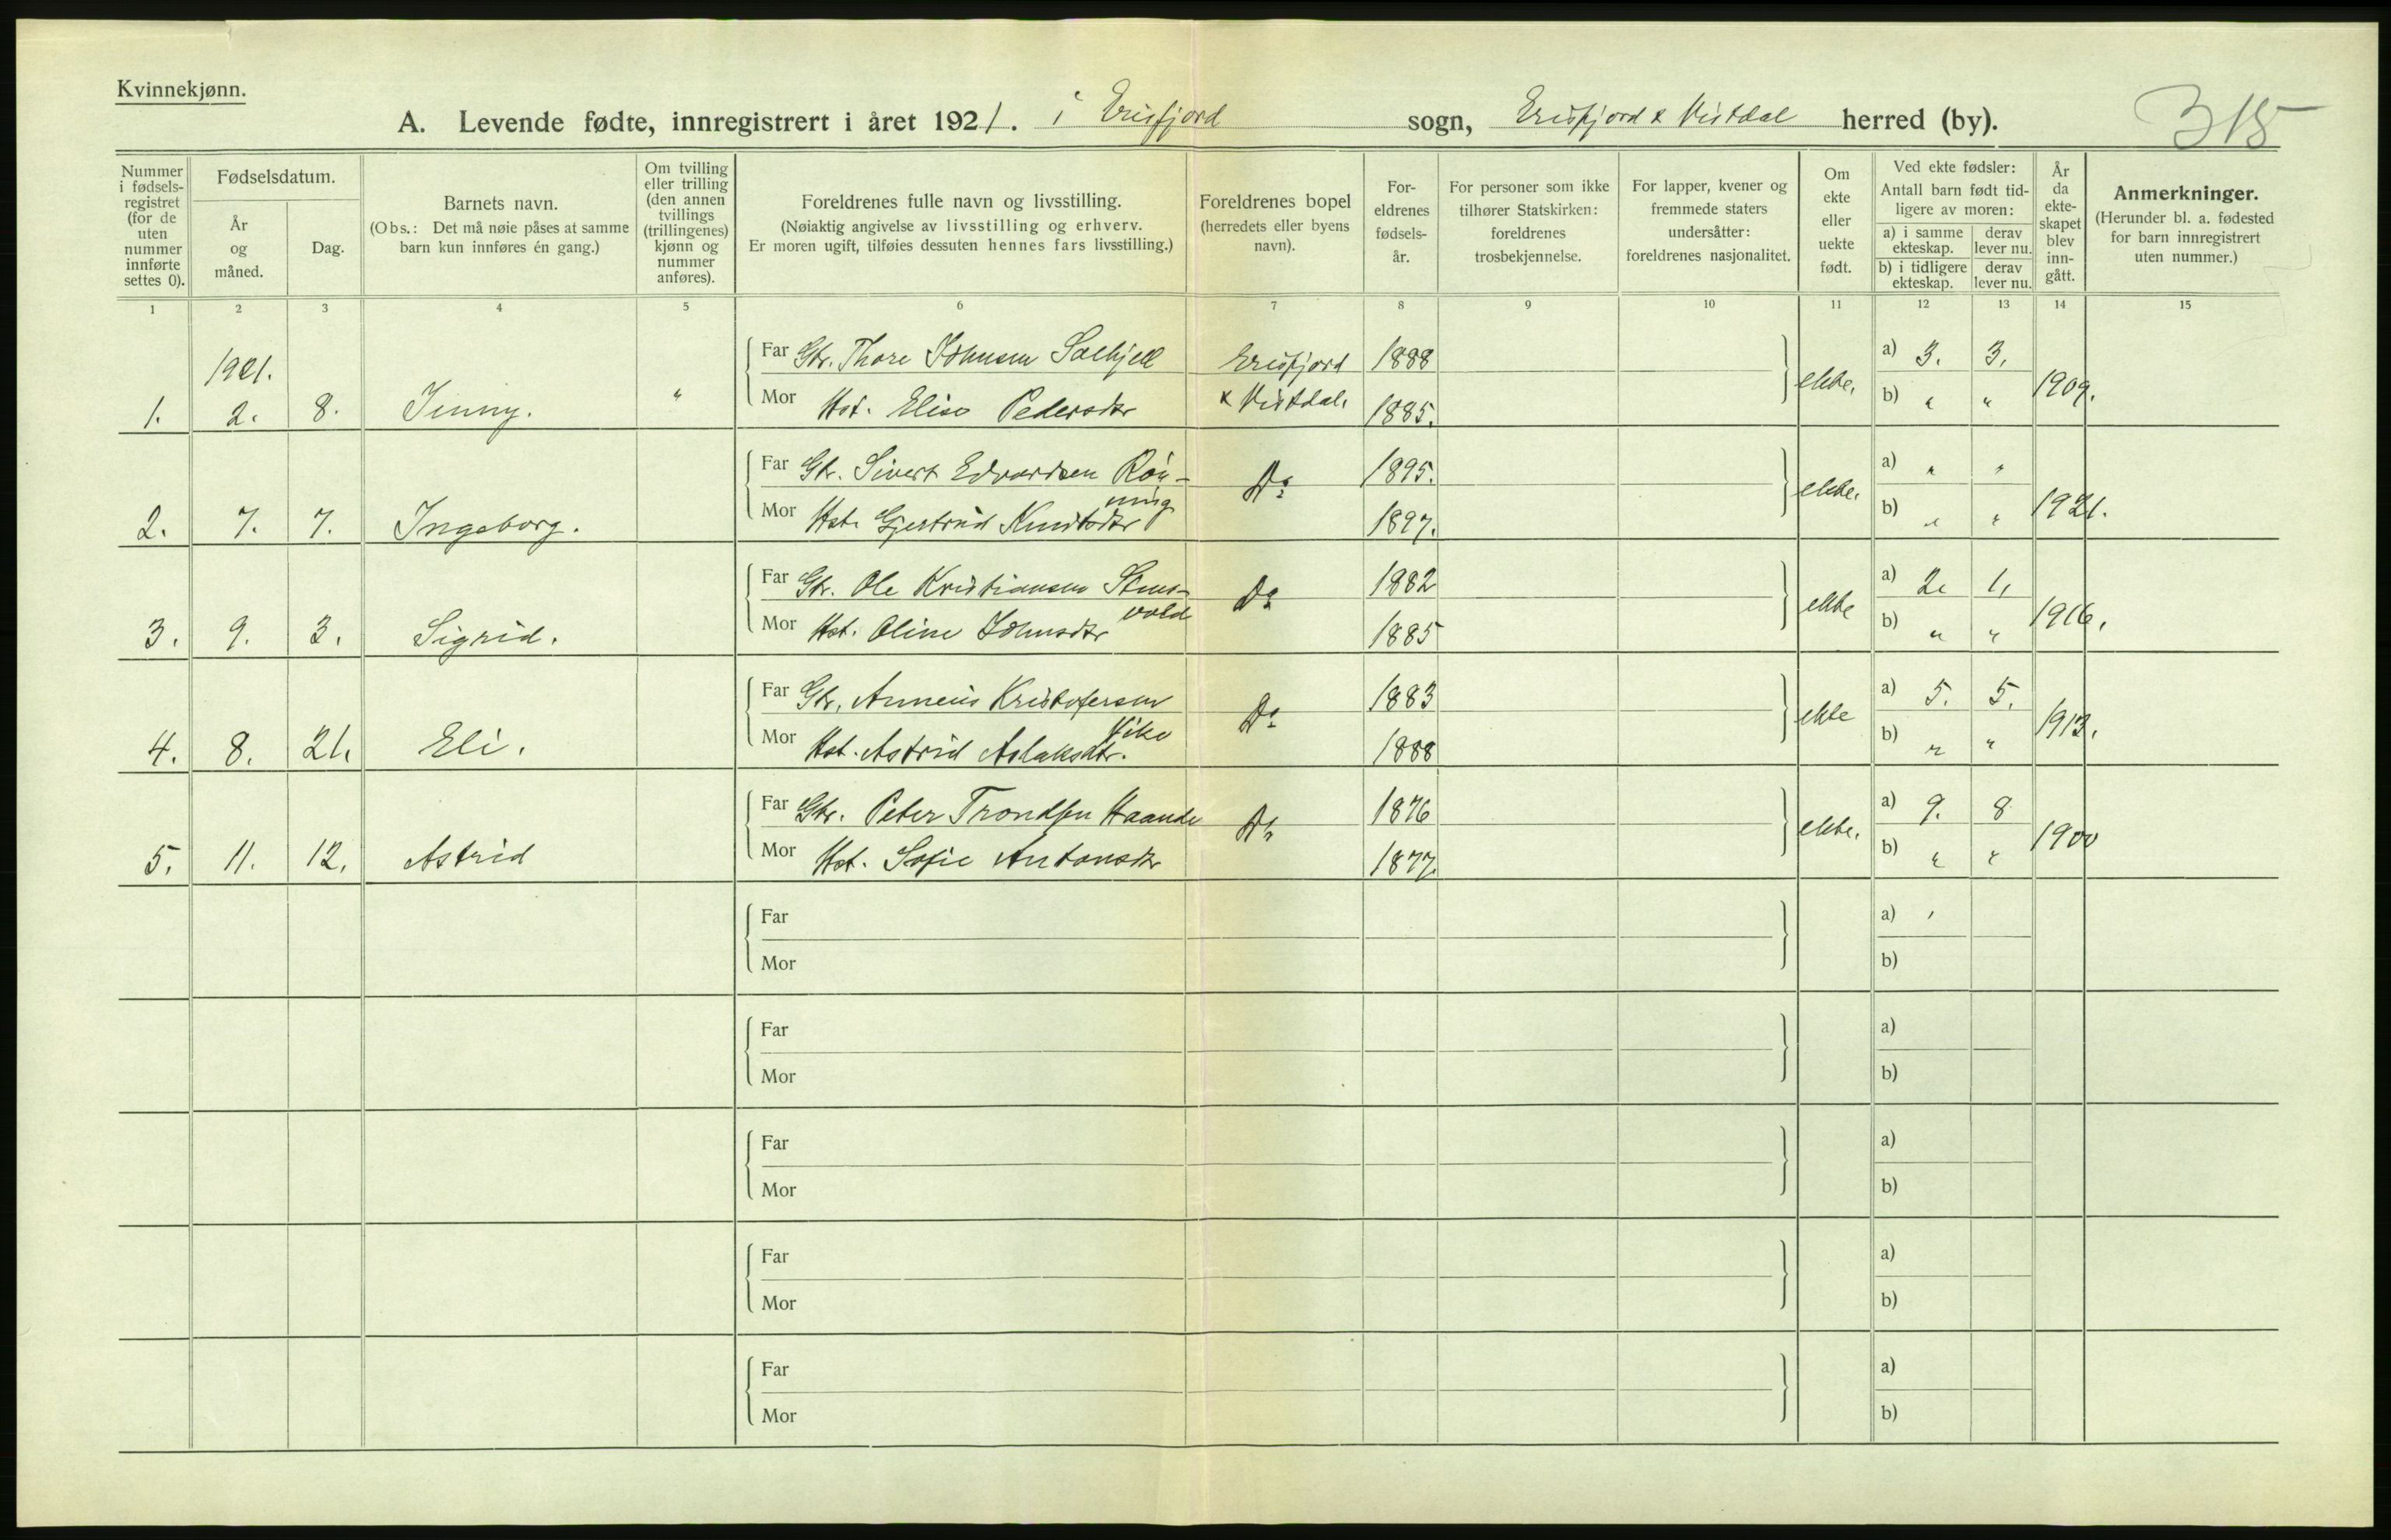 Kvinnekjønn.
A. Levende fødte, innregistrert i året 1921. i Erisfjord sogn, Erisfjord & Vistdal herred (by). 315
Nummer i fødsels-registret (for de uten nummer innførte settes 0).
Fødselsdatum.
År og måned.
Dag.
Barnets navn.
(Obs.: Det må nøie påses at samme barn kun innføres én gang.)
Om tvilling eller trilling (den annen tvillings (trillingenes) kjønn og nummer anføres).
Foreldrenes fulle navn og livsstilling.
(Nøiaktig angivelse av livsstilling og erhverv.
Er moren ugift, tilføies dessuten hennes fars livsstilling.)
Foreldrenes bopel
(herredets eller byens navn).
For-eldrenes fødsels-år.
For personer som ikke tilhører Statskirken: foreldrenes trosbekjennelse.
For lapper, kvener og fremmede staters undersåtter: foreldrenes nasjonalitet.
Om ekte eller uekte født.
Ved ekte fødsler:
Antall barn født tid-ligere av moren:
a) i samme ekteskap. derav lever nu.
b) i tidligere ekteskap. derav lever nu.
År da ekte-skapet blev inn-gått.
Anmerkninger.
(Herunder bl. a. fødested for barn innregistrert uten nummer.)
1 2 3 4 5 6 7 8 9 10 11 12 13 14 15
1921.
Far Gbr. Thore Johnsen Solhjell Erisfjord 1888 a) 3. 3.
1. 2. 8. Jenny. " Mor Hst. Elise Pedersdtr & Vistdal. 1885. ekte. b) " " 1909.
Far Gbr. Sivert Edvardsen Rön- Do 1895. a) " "
ning
2. 7. 7. Ingeborg. Mor Hst. Gjertrud Knutsdtr 1897. ekte. b) " " 1921.
Far Gbr. Ole Kristiansen Stens- Do 1882 a) 2. 1.
vold
3. 9. 3. Sigrid. Mor Hst. Oline Johnsdtr 1885 ekte b) " " 1916.
Far Gbr. Anneus Kristofersen Do 1883 a) 5. 5.
Vike
4. 8. 21. Eli. Mor Hst. Astrid Aslaksdtr. 1888 ekte b) " " 1913.
Far Gbr. Peter Trondsen Haande Do 1876 a) 9. 8
5. 11. 12. Astrid Mor Hst. Sofie Antonsdtr 1877. ekte. b) " " 1900
Far a)
Mor b)
Far a)
Mor b)
Far a)
Mor b)
Far a)
Mor b)
Far a)
Mor b)